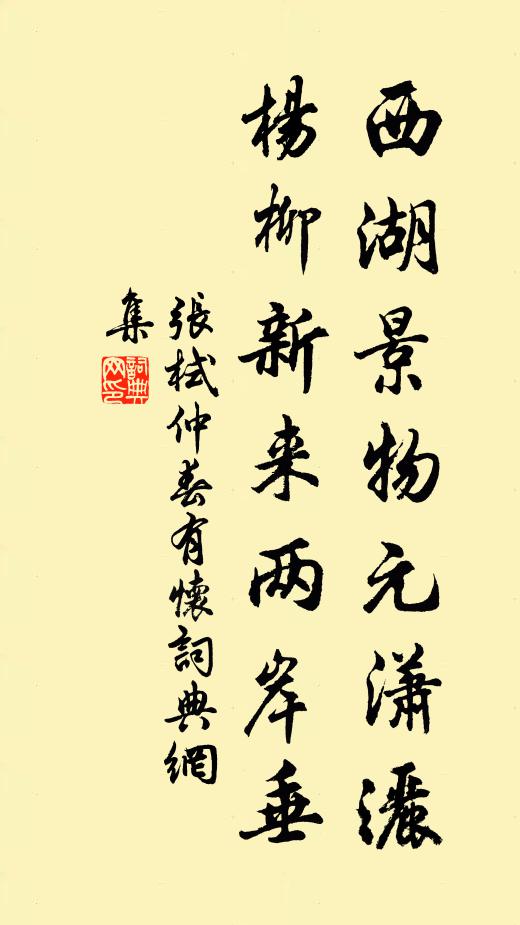 西湖景物元瀟灑
楊柳新来两岸垂
張栻仲春有懷詞典網
集
詞典網印